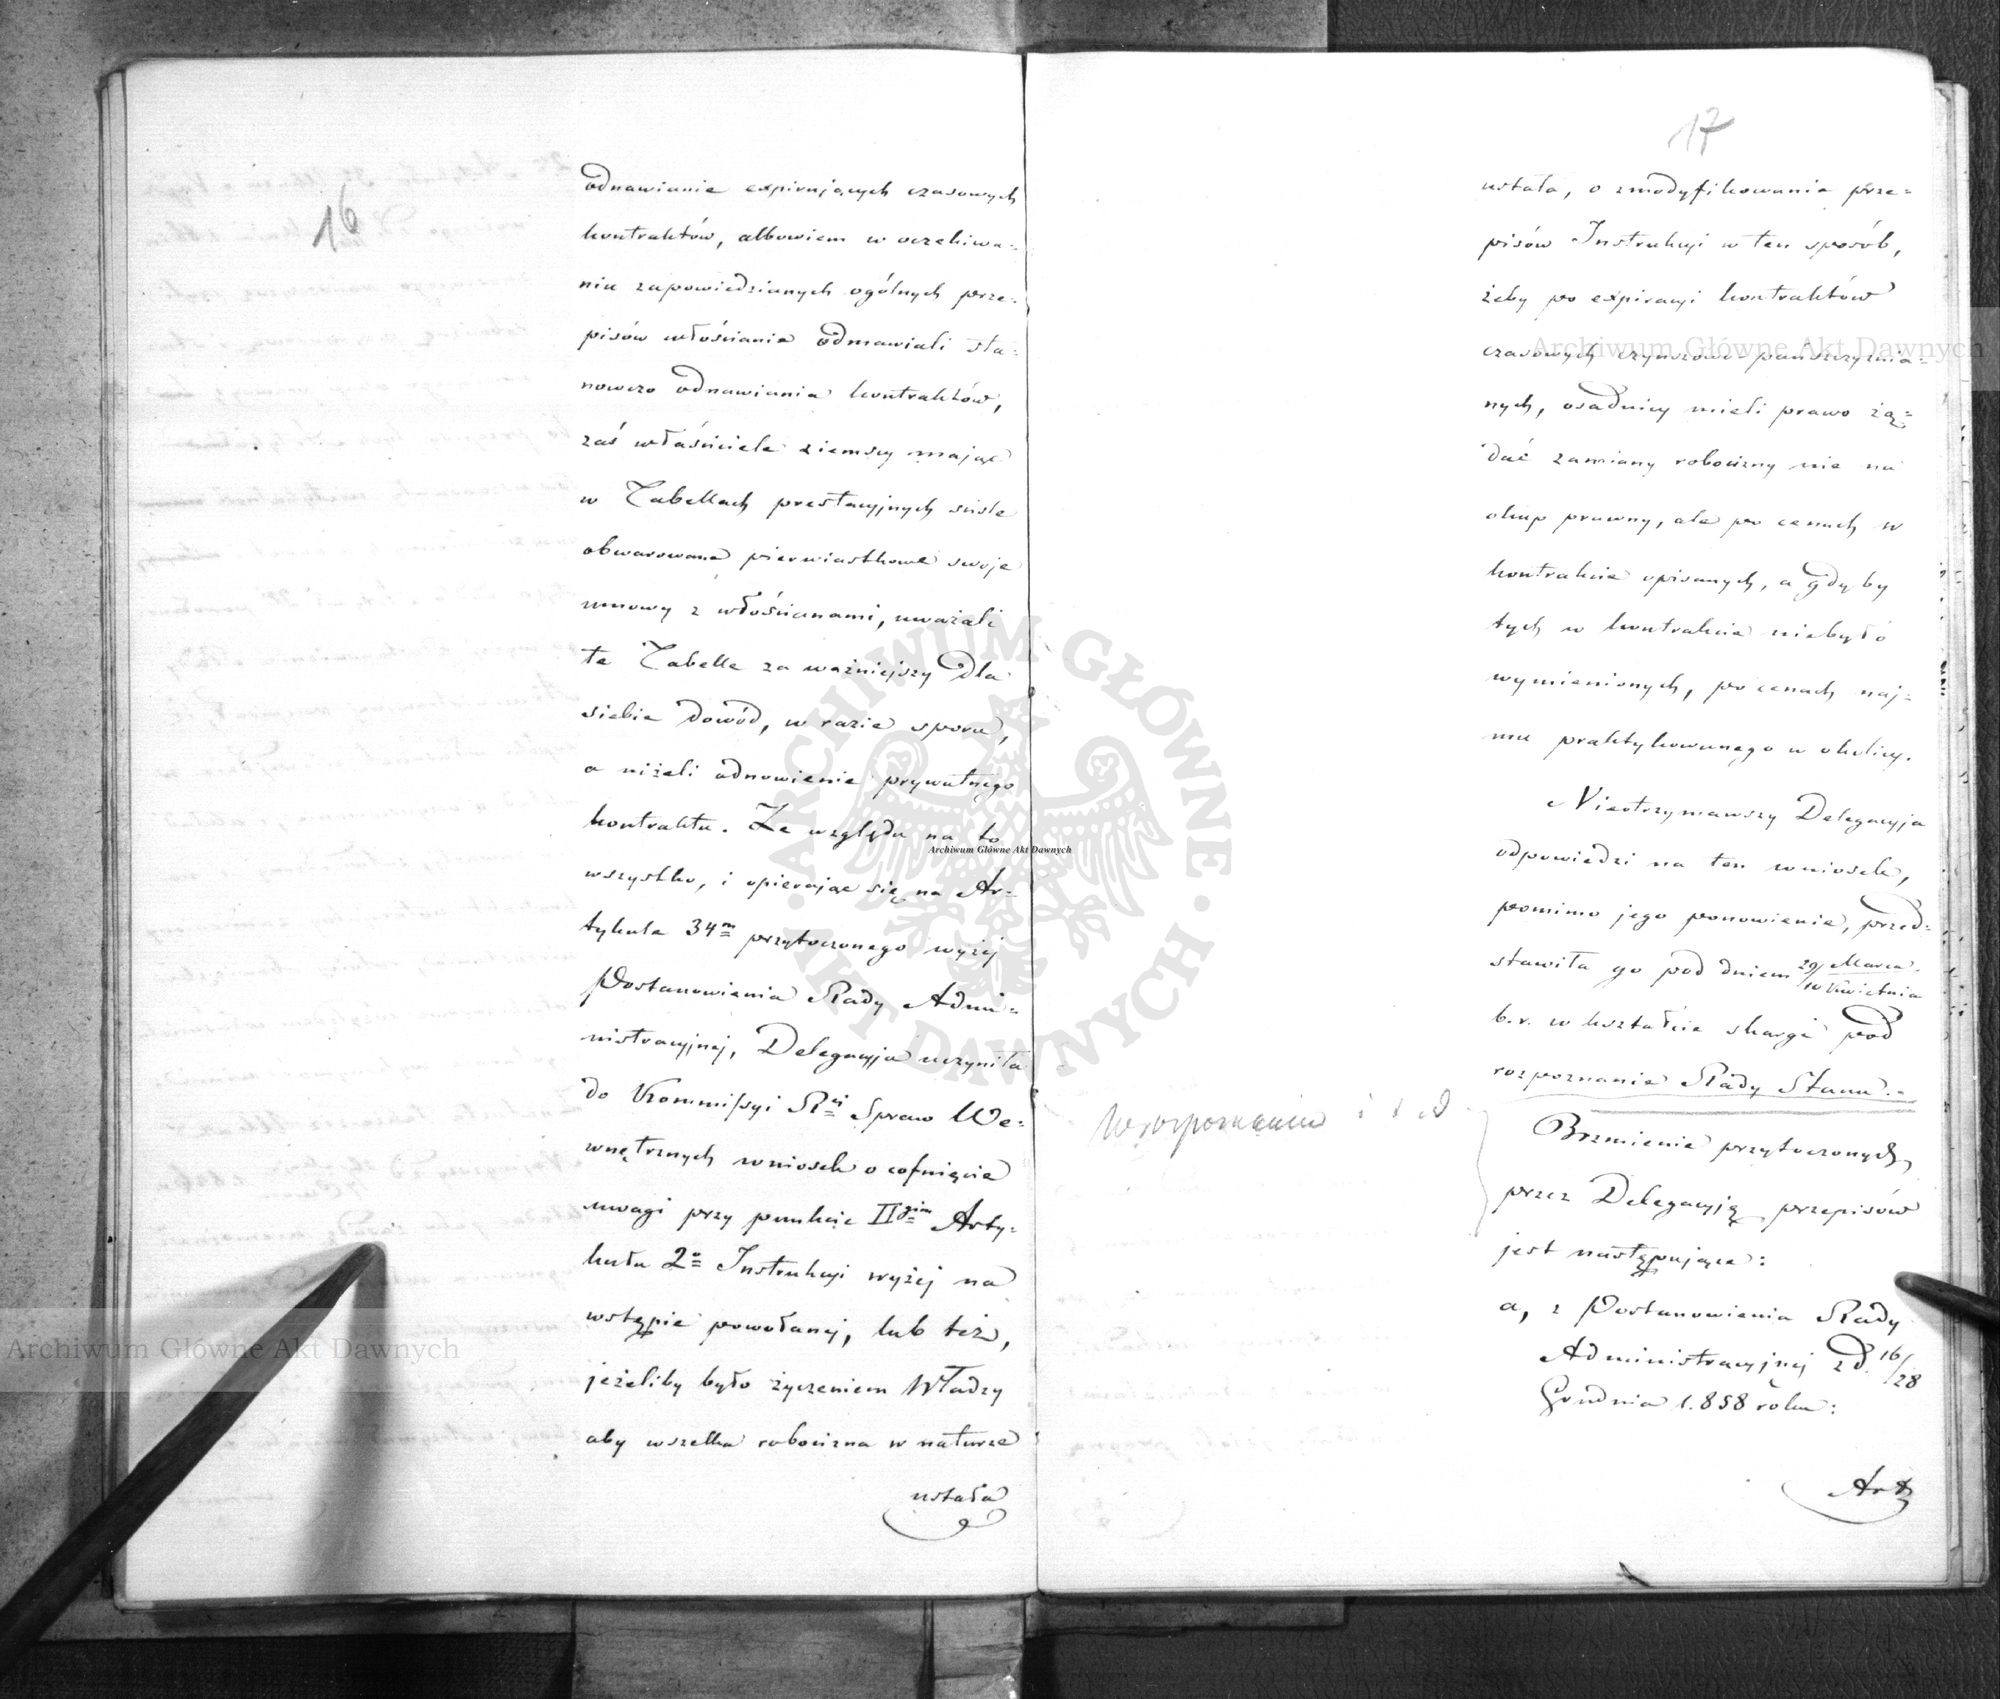 16
odnawianie expirujących czasowych
kontraktów, albowiem w oczekiwa-
niu zapowiedzianych ogólnych prze-
pisów włościanie odmawiali sta-
nowczo odnawiania kontraktów,
zaś właściciele ziemscy mając
w Tabellach prestacyjnych ściśle
obwarowane pierwiastkowe swoje
umowy z włościanami, uważali
te Tabelle za ważniejszy dla
siebie dowód, w razie sporu,
a niżeli odnowienie prywatnego
kontraktu. Ze względu na to
wszystko, i opierając się na Ar-
tykule 34m przytoczonego wyżej
Postanowienia Rady Admi-
nistracyjnej, Delegacyja uczyniła
do Kommissyi Rei Spraw We-
wnętrznych wniosek o cofnięcie
uwagi przy punkcie IIgim Arty-
kułu 2o Instrukcyi wyżej na
wstępie powołanej, lub też,
jeżeliby było życzeniem Władzy
aby wszelka robocizna w naturze
ustała
17
ustała, o zmodyfikowanie prze-
pisów Instrukcyi w ten sposób,
żeby po expiracyi kontraktów
czasowych czynszowo-pańszczyznia-
nych, osadnicy mieli prawo żą-
dać zamiany robocizny nie na
okup prawny, ale po cenach w
kontrakcie opisanych, a gdyby
tych w kontrakcie niebyło
wymienionych, po cenach naj-
mu praktykowanego w okolicy.
Nieotrzymawszy Delegacyja
odpowiedzi na ten wniosek,
pomimo jego ponowienie, przed-
stawiła go pod dniem 29/10 Marca/Kwietnia
b.r. w kształcie skargi pod
rozpoznanie Rady Stanu.-
W rozpoznaniu i t d
Brzmienie przytoczonych
przez Delegacyją przepisów
jest następujące:
a, z Postanowienia Rady
Administracyjnej z d. 16/28
Grudnia 1.858 roku:
Art
Archiwum Główne Akt Dawnych
Archiwum Główne Akt Dawnych
Archiwum Główne Akt Dawnych
ARCHIWUM GŁÓWNE · AKT DAWNYCH ·